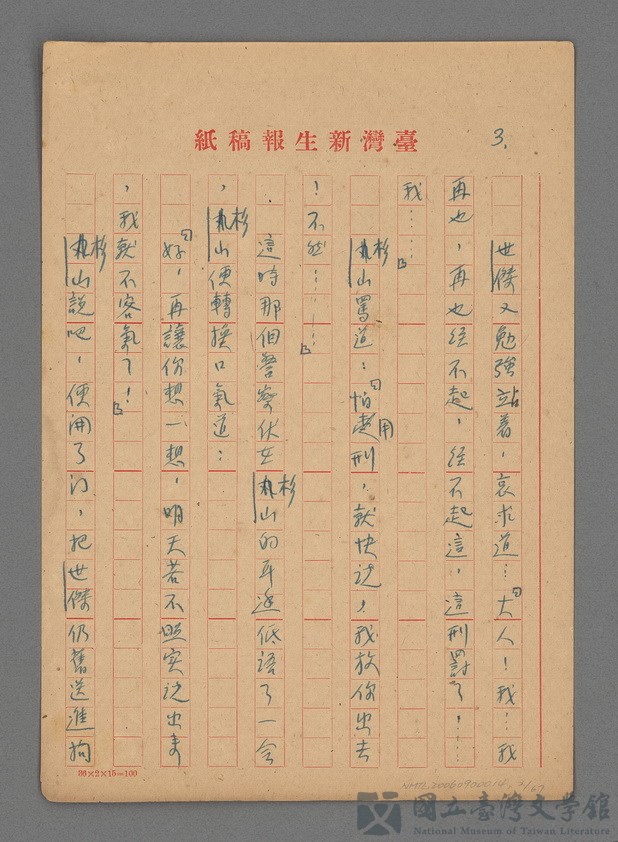 臺灣新生報稿紙
3.
世傑又勉強站着，哀求道：「大人！我…我
再也，再也经不起，经不起這，這刑罰了！…
我……」
杉山罵道：「怕用刑，就快说，我放你出去
！不然！……！」
這時那個警察伏在杉山的耳邊低語了一会
，杉山便轉換口氣道：
「好，再讓你想一想，明天若不照实说出来
，我就不客氣了！」
杉山說吧，便開了门，把世傑仍舊送進拘
36×2×15=100
國立臺灣文学館
National Museum of Taiwan Literature